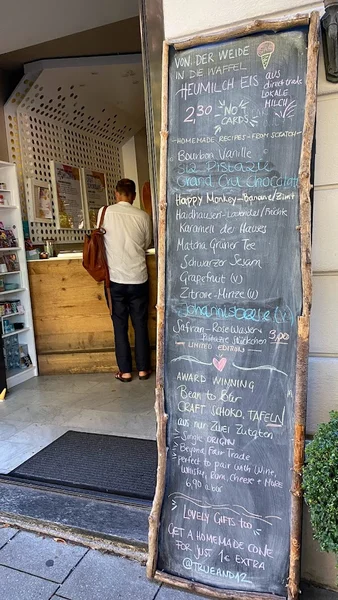 VON DER WEIDE
IN DIE WAFFEL
HEUMILCH EIS
aus
direct trade
LOKALE
MILCH
2,30
NO
CARDS
HOMEMADE RECIPES - FROM SCRATCH
Bourbon Vanille
Siz. Pistazie
Grand Cru Chocolat
Happy Monkey - Banane/Zimt
Haidhausen - Lavendel/Früchte
Karamell des Hauses
Matcha Grüner Tee
Schwarzer Sesam
Grapefruit (v)
Zitrone-Minze (v)
Johannisbeere (v)
Safran-Rosewasser
Pistazie Stückchen 3,00
LIMITED EDITION
AWARD WINNING
Bean to Bar
CRAFT SCHOKO TAFELN
aus nur zwei Zutaten
Single ORIGIN
Beyond Fair Trade
perfect to pair with Wine,
Whisky, Rum, Cheese & More
6,90
LOVELY GIFTS too
GET A HOMEMADE CONE
FOR JUST 1€ EXTRA
@TRUEANDA12